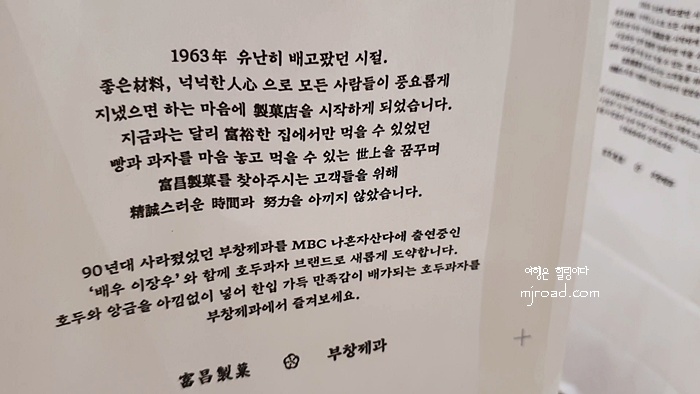 1963年 유난히 배고팠던 시절.
좋은材料, 넉넉한人心 으로 모든 사람들이 풍요롭게
지냈으면 하는 마음에 製菓店을 시작하게 되었습니다.
지금과는 달리 富裕한 집에서만 먹을 수 있었던
빵과 과자를 마음 놓고 먹을 수 있는 世上을 꿈꾸며
富昌製菓를 찾아주시는 고객들을 위해
精誠스러운 時間과 努力을 아끼지 않았습니다.
90년대 사라졌었던 부창제과를 MBC 나혼자산다에 출연중인
'배우 이장우'와 함께 호두과자 브랜드로 새롭게 도약합니다.
호두와 앙금을 아낌없이 넣어 한입 가득 만족감이 배가되는 호두과자를
부창제과에서 즐겨보세요.
富昌製菓 부창제과
여행은 힐링이다
mjroad.com